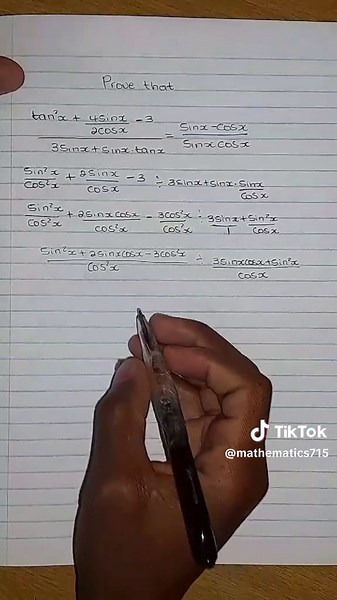 Prove that
tan²x + 4sinx/2cosx - 3 / 3sinx + sinx.tanx = sinx-cosx / sinxcosx
sin²x/cos²x + 2sinx/cosx - 3 ÷ 3sinx + sinx. sinx/cosx
sin²x/cos²x + 2sinxcosx/cos²x - 3cos²x/cos²x ÷ 3sinx/1 + sin²x/cosx
sin²x + 2sinxcosx - 3cos²x / cos²x ÷ 3sinxcosx + sin²x / cosx
TikTok
@mathematics715